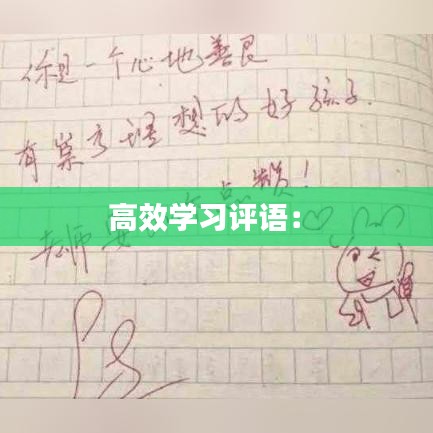 你是一个心地善良
有崇高理想的好孩子.
老师要 点赞！
高效学习评语：
PS